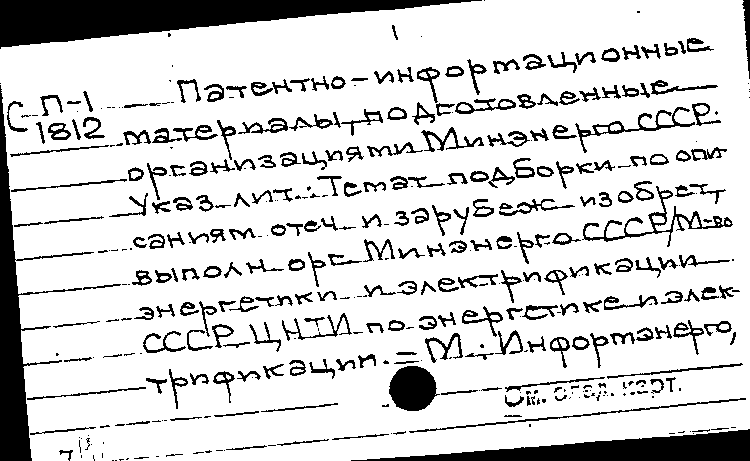 С П-1
1812
Патентно-информационные
материалы, подготовленные
организациями Минэнерго СССР:
Указ. лит.: Темат. подборки по опи-
саниям отеч. и зарубеж. изобрет.,
выполн. орг. Минэнерго СССР/М-во
энергетики и электрификации
СССР. ЦНТИ по энергетике и элек-
трификации. – М.: Информэнерго,
См. след. карт.